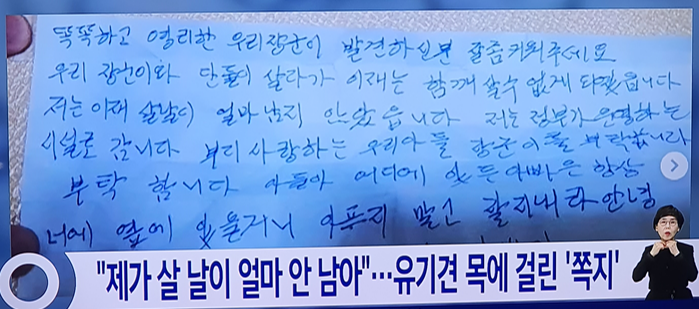 똑똑하고 영리한 우리장군이 발견하신분 잘좀키워주세요
우리 장군이와 단둘이 살다가 이제는 함께 살수 없게 되졌읍니다
저는 이제 살날이 얼마남지 안았읍니다 저는 정부가 운영하는
시설로 갑니다 부디 사랑하는 우리아들 장군이를 부탁합니다
부탁 합니다 아들아 어디에 있든 아빠은 항상
너에 옆에 있을거니 아푸지 말고 잘지내라 안녕
"제가 살 날이 얼마 안 남아"…유기견 목에 걸린 '쪽지'